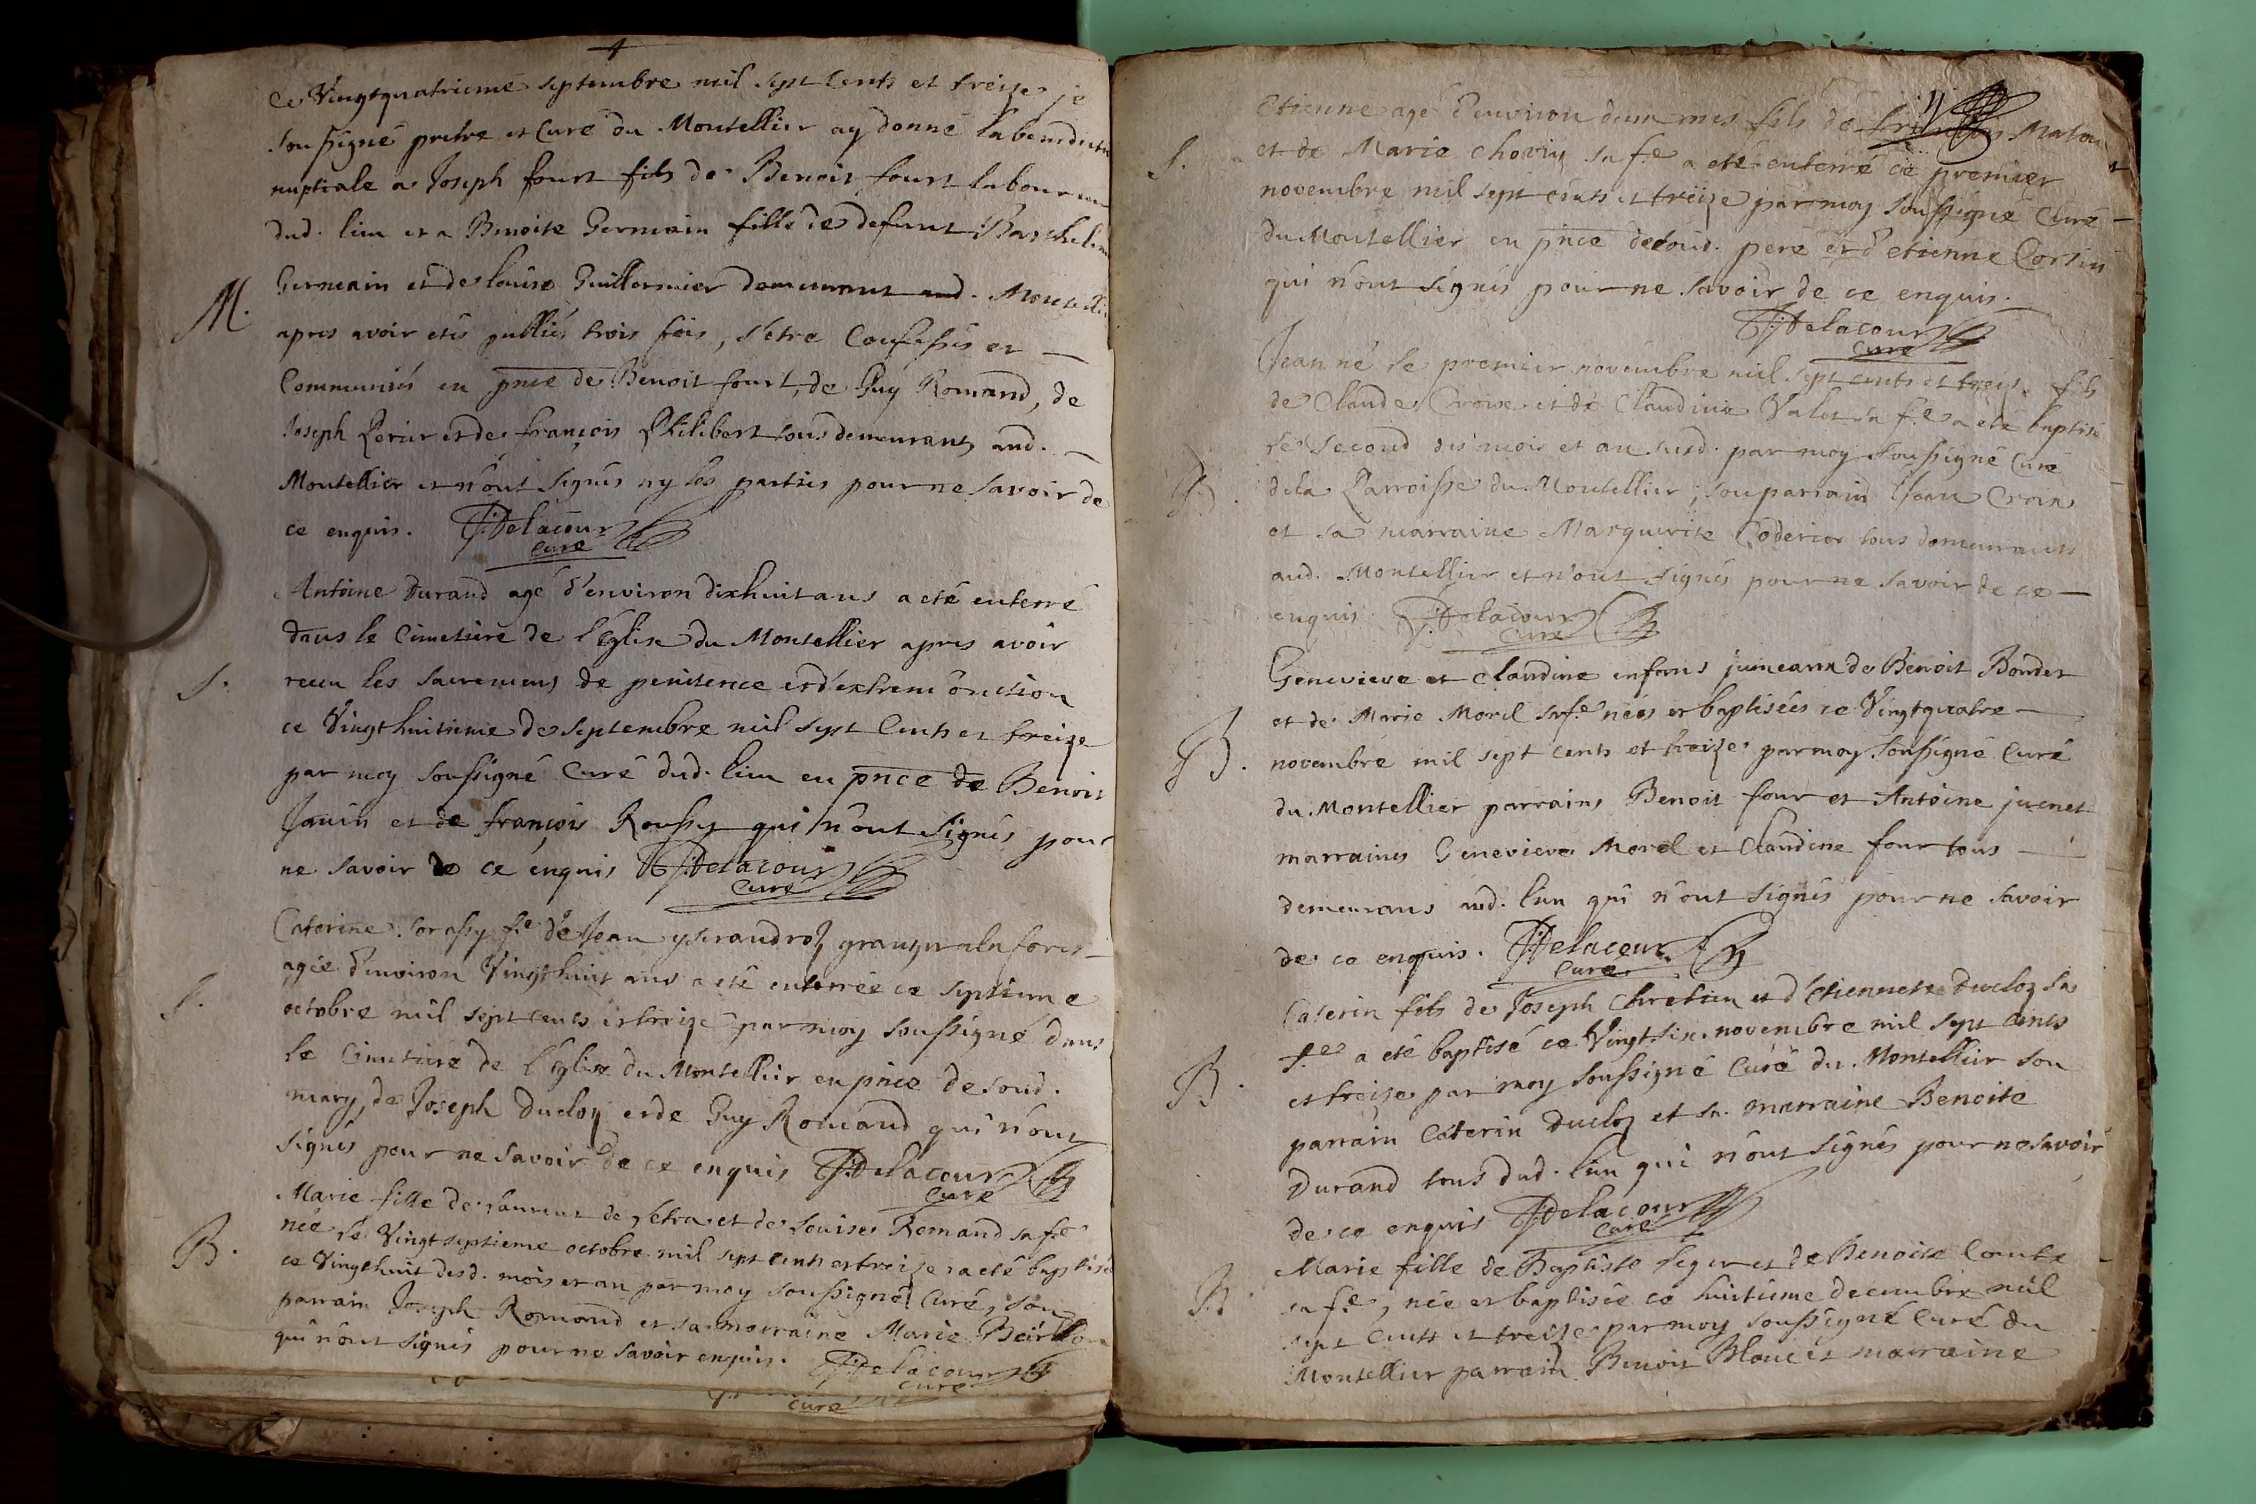 Ce Vingtquatrieme septembre mil sept cents et treize je
soussigné pretre et Curé du Montellier ay donné la benediction
nuptiale a Joseph fourt fils de Benoit fourt laboureur
dud. lieu et a Benoite Germain fille de defunt Barthelemi
M. Germain et de louise Guillermier demeurant aud. Montellier
apres avoir etés publiés trois fois, s'etre Confessés et
Communiés en pnce de Benoit fourt, de Guy Romand, de
Joseph Perier et de françois Philibert tous demeurants aud.
Montellier et n'ont signés ny les parties pour ne savoir de
ce enquis. Delacour
Curé
Antoine Durand agé d'environ dixhuit ans a eté enterré
dans le Cimetiere de l'Eglise du Montellier apres avoir
S. receu les sacremens de penitence et d'extrem'onction
ce Vingthuitieme de septembre mil sept Cents et treize
par moy soussigné Curé dud. lieu en pnce de Benoit
Janin et de françois Roussy qui n'ont signés pour
ne savoir de ce enquis Delacour
Curé
Caterine f.e de Jean
agée d'environ Vingthuit ans a eté enterrée ce septieme
S. octobre mil sept cents et treize par moy soussigné dans
le Cimetiere de l'Eglise du Montellier en pnce de soud.
mary, de Joseph Ducloz et de Guy Romand qui n'ont
signés pour ne savoir de ce enquis Delacour
Curé
Marie fille de laurent de et de louise Romand sa f.e
née le Vingtseptieme octobre mil sept cents et treize a eté baptisée
B. ce Vingthuit desd. mois et an par moy soussigné Curé, son
parrain Joseph Romand et sa marraine Marie
qui n'ont signés pour ne savoir enquis. Delacour
Curé
Curé
Etienne agé d'environ d'un mois fils de
S. et de Marie Chovin sa f.e a eté enterré ce premier
novembre mil sept cents et treize par moy soussigné Curé
du Montellier en pnce de soud. pere et d'etienne Corsin
qui n'ont signés pour ne savoir de ce enquis.
Delacour
Curé
Jean né le premier novembre mil sept cents et treize fils
de Claude Croix et de Claudine Valet sa f.e a eté baptisé
le second des mois et an susd. par moy soussigné Curé
B. dela Parroisse du Montellier; son parrain Jean Croix
et sa marraine Marguerite Coderier tous demeurants
aud. Montellier et n'ont signés pour ne savoir de ce
enquis Delacour
Curé
Genevieve et Claudine enfans jumeaux de Benoit Bondet
et de Marie Morel sa f.e nées et baptisées ce Vingtquatre
B. novembre mil sept cents et treize par moy soussigné Curé
du Montellier parrains Benoit four et Antoine juenet
marraines Genevieve Morel et Claudine four tous
demeurans aud. lieu qui n'ont signés pour ne savoir
de ce enquis. Delacour
Curé
Caterin fils de Joseph Chretien et d'Etiennete Ducloz sa
f.e a eté baptisé ce Vingtsix novembre mil sept cents
B. et treize par moy soussigné Curé du Montellier son
parrain Caterin Ducloz et sa marraine Benoite
Durand tous dud. lieu qui n'ont signés pour ne savoir
de ce enquis Delacour
Curé
Marie fille de Baptiste leger et de Benoite Comte
B. sa f.e, née et baptisée ce huitieme decembre mil
sept Cents et treize par moy soussigné Curé du
Montellier parrain Benoit Blanc et marraine